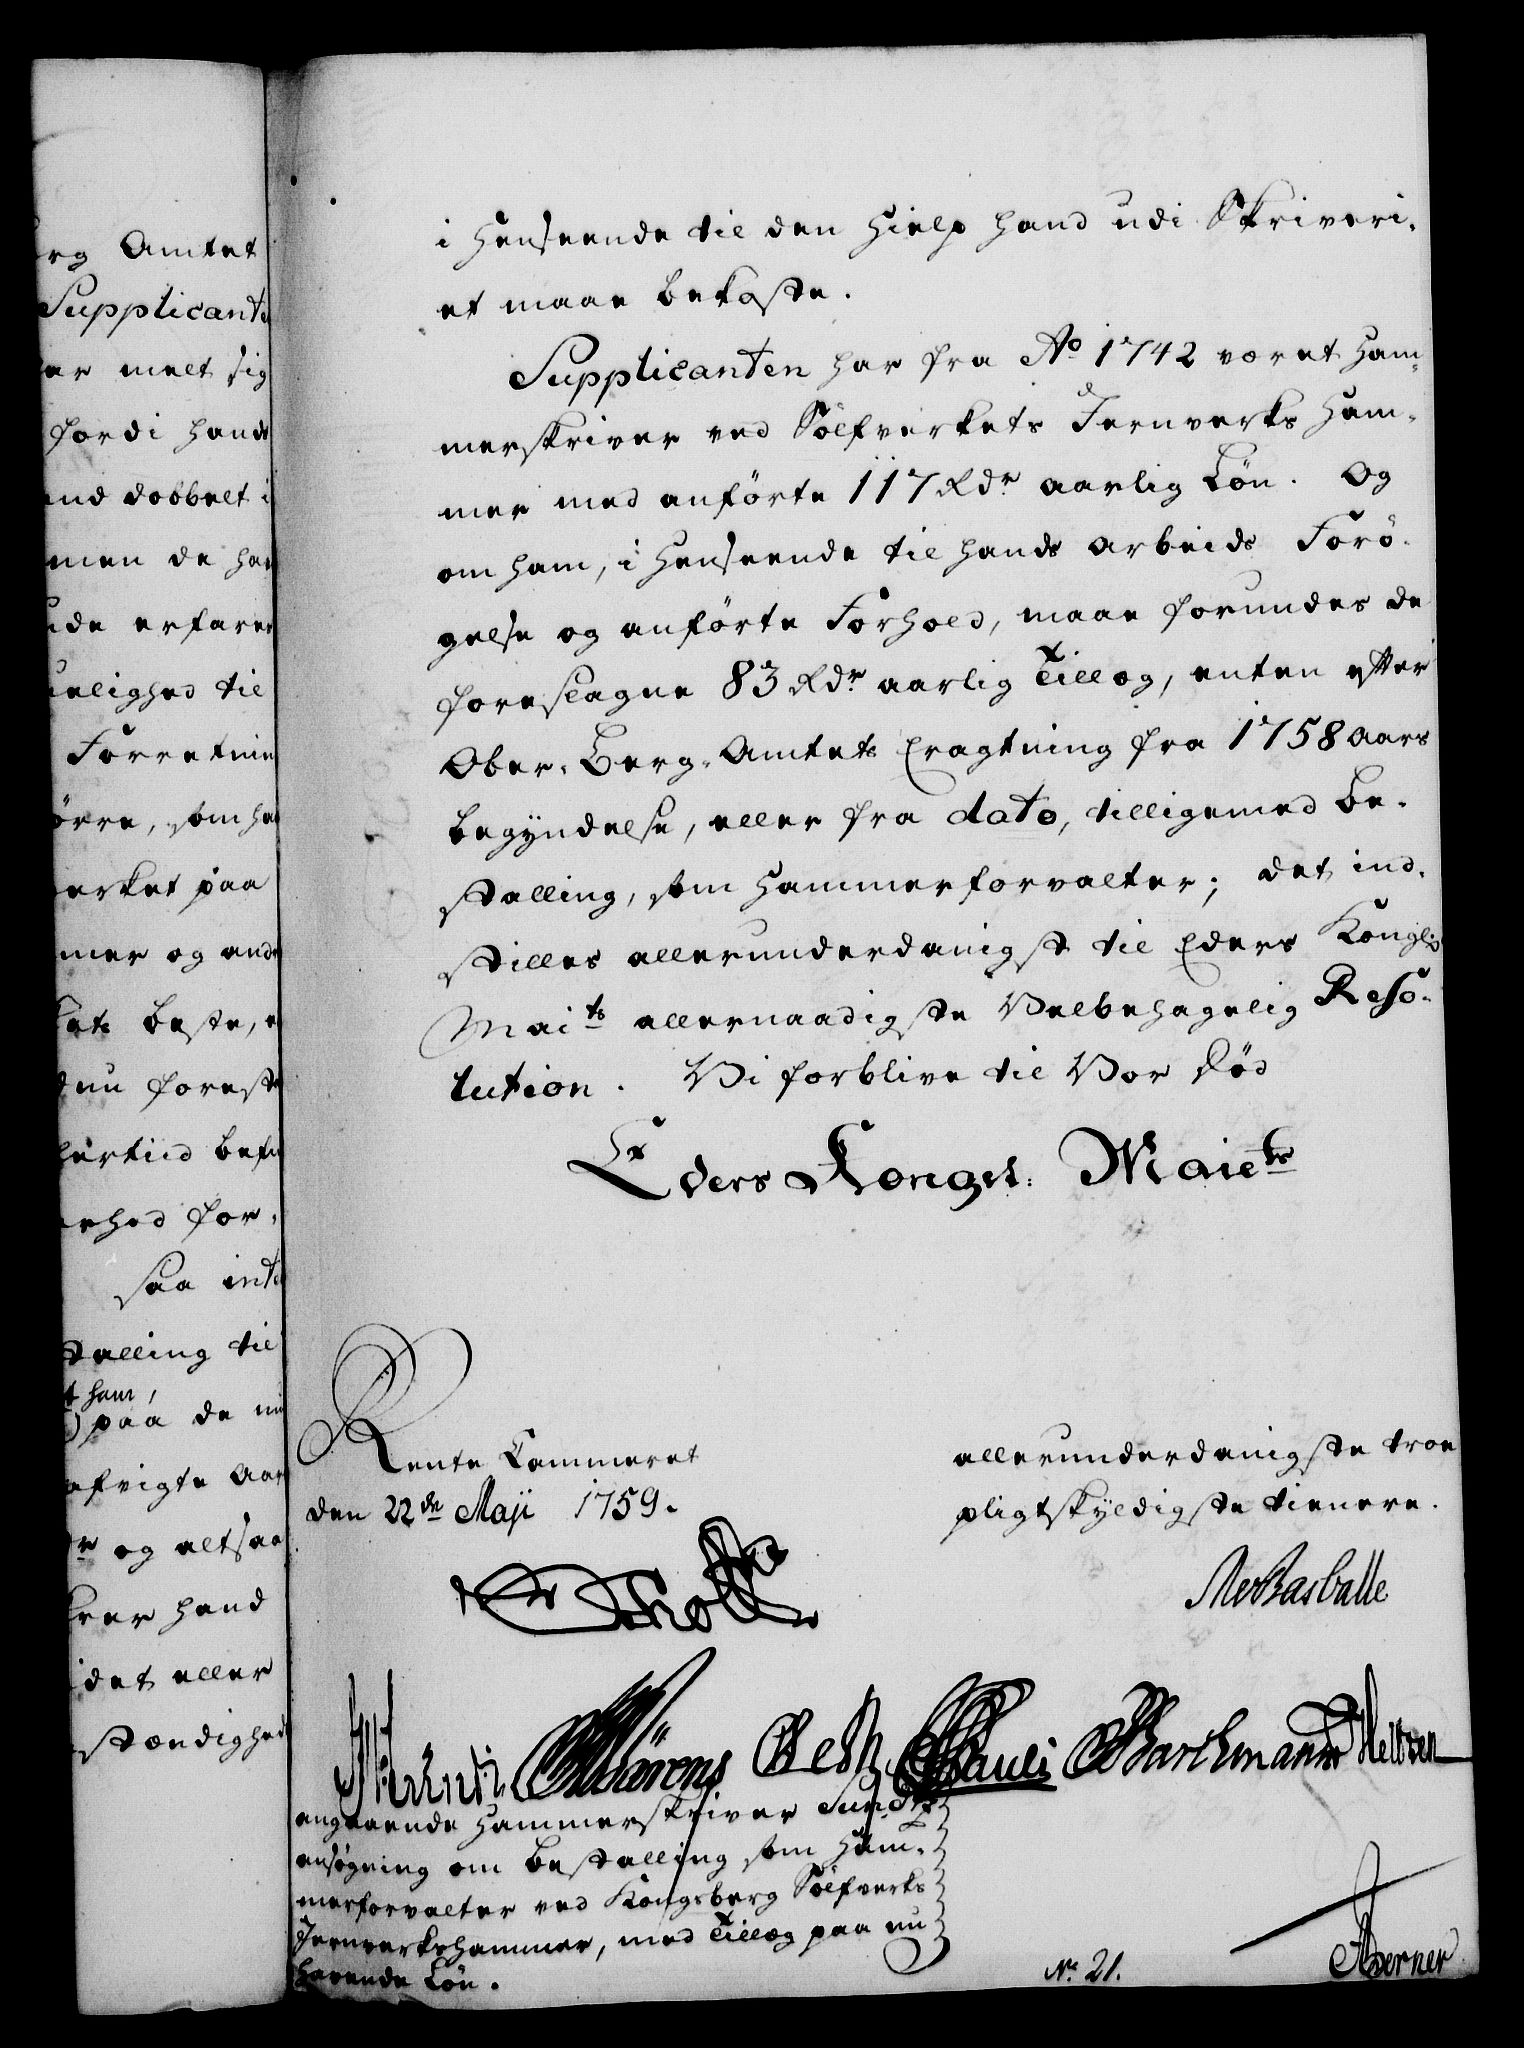 erg Amtet
Supplicante
er melt sig
fordi hands
end dobbelt i
men de har
erfaren
uelighed til
Forretnin
örre, som ha
verket paa
mer og andr
beste, e
nu forest
lertiid befi
erhed for-
saa
stalling til
ham,
paa de
afvigte Aar
og altsaa
hand
det eller
stændighed
i Henseende til den Hielp hand udi Skriveri-
et maae bekoste.
Supplicanten har fra Ao 1742 været Ham-
merskriver ved Sölfverkets Jernverks Ham-
mer med anförte 117 Rdr aarlig Lön. Og
om ham, i Henseende til hands Arbeids Forö-
gelse og anförte Forhold, maae forundes de
foreslagne 83 Rdr aarlig Tillæg, enten efter
Ober-Berg-Amtets Eragtning fra 1758 Aars
begyndelse, eller fra dato, tilligemed Be-
stalling, som Hammerforvalter; det ind-
stilles allerunderdanigst til Eders Kongelig
Maits allernaadigste Velbehagelig Reso-
lution. Vi forblive til Vor Död
Eders Kongel: Maiets
Rente Cammeret
den 22de Maji 1759.
allerunderdanigste troe
pligtskyldigste tienere.
Holst
Wærens Beth Pauli Barchmann Heltzen
angaaende Hammerskriver Sundts
ansögning om bestalling som Ham-
merforvalter ved Kongsberg Sölfverks
Jernverkshammer, med Tillæg paa nu
havende Lön.
No 21.
Berner